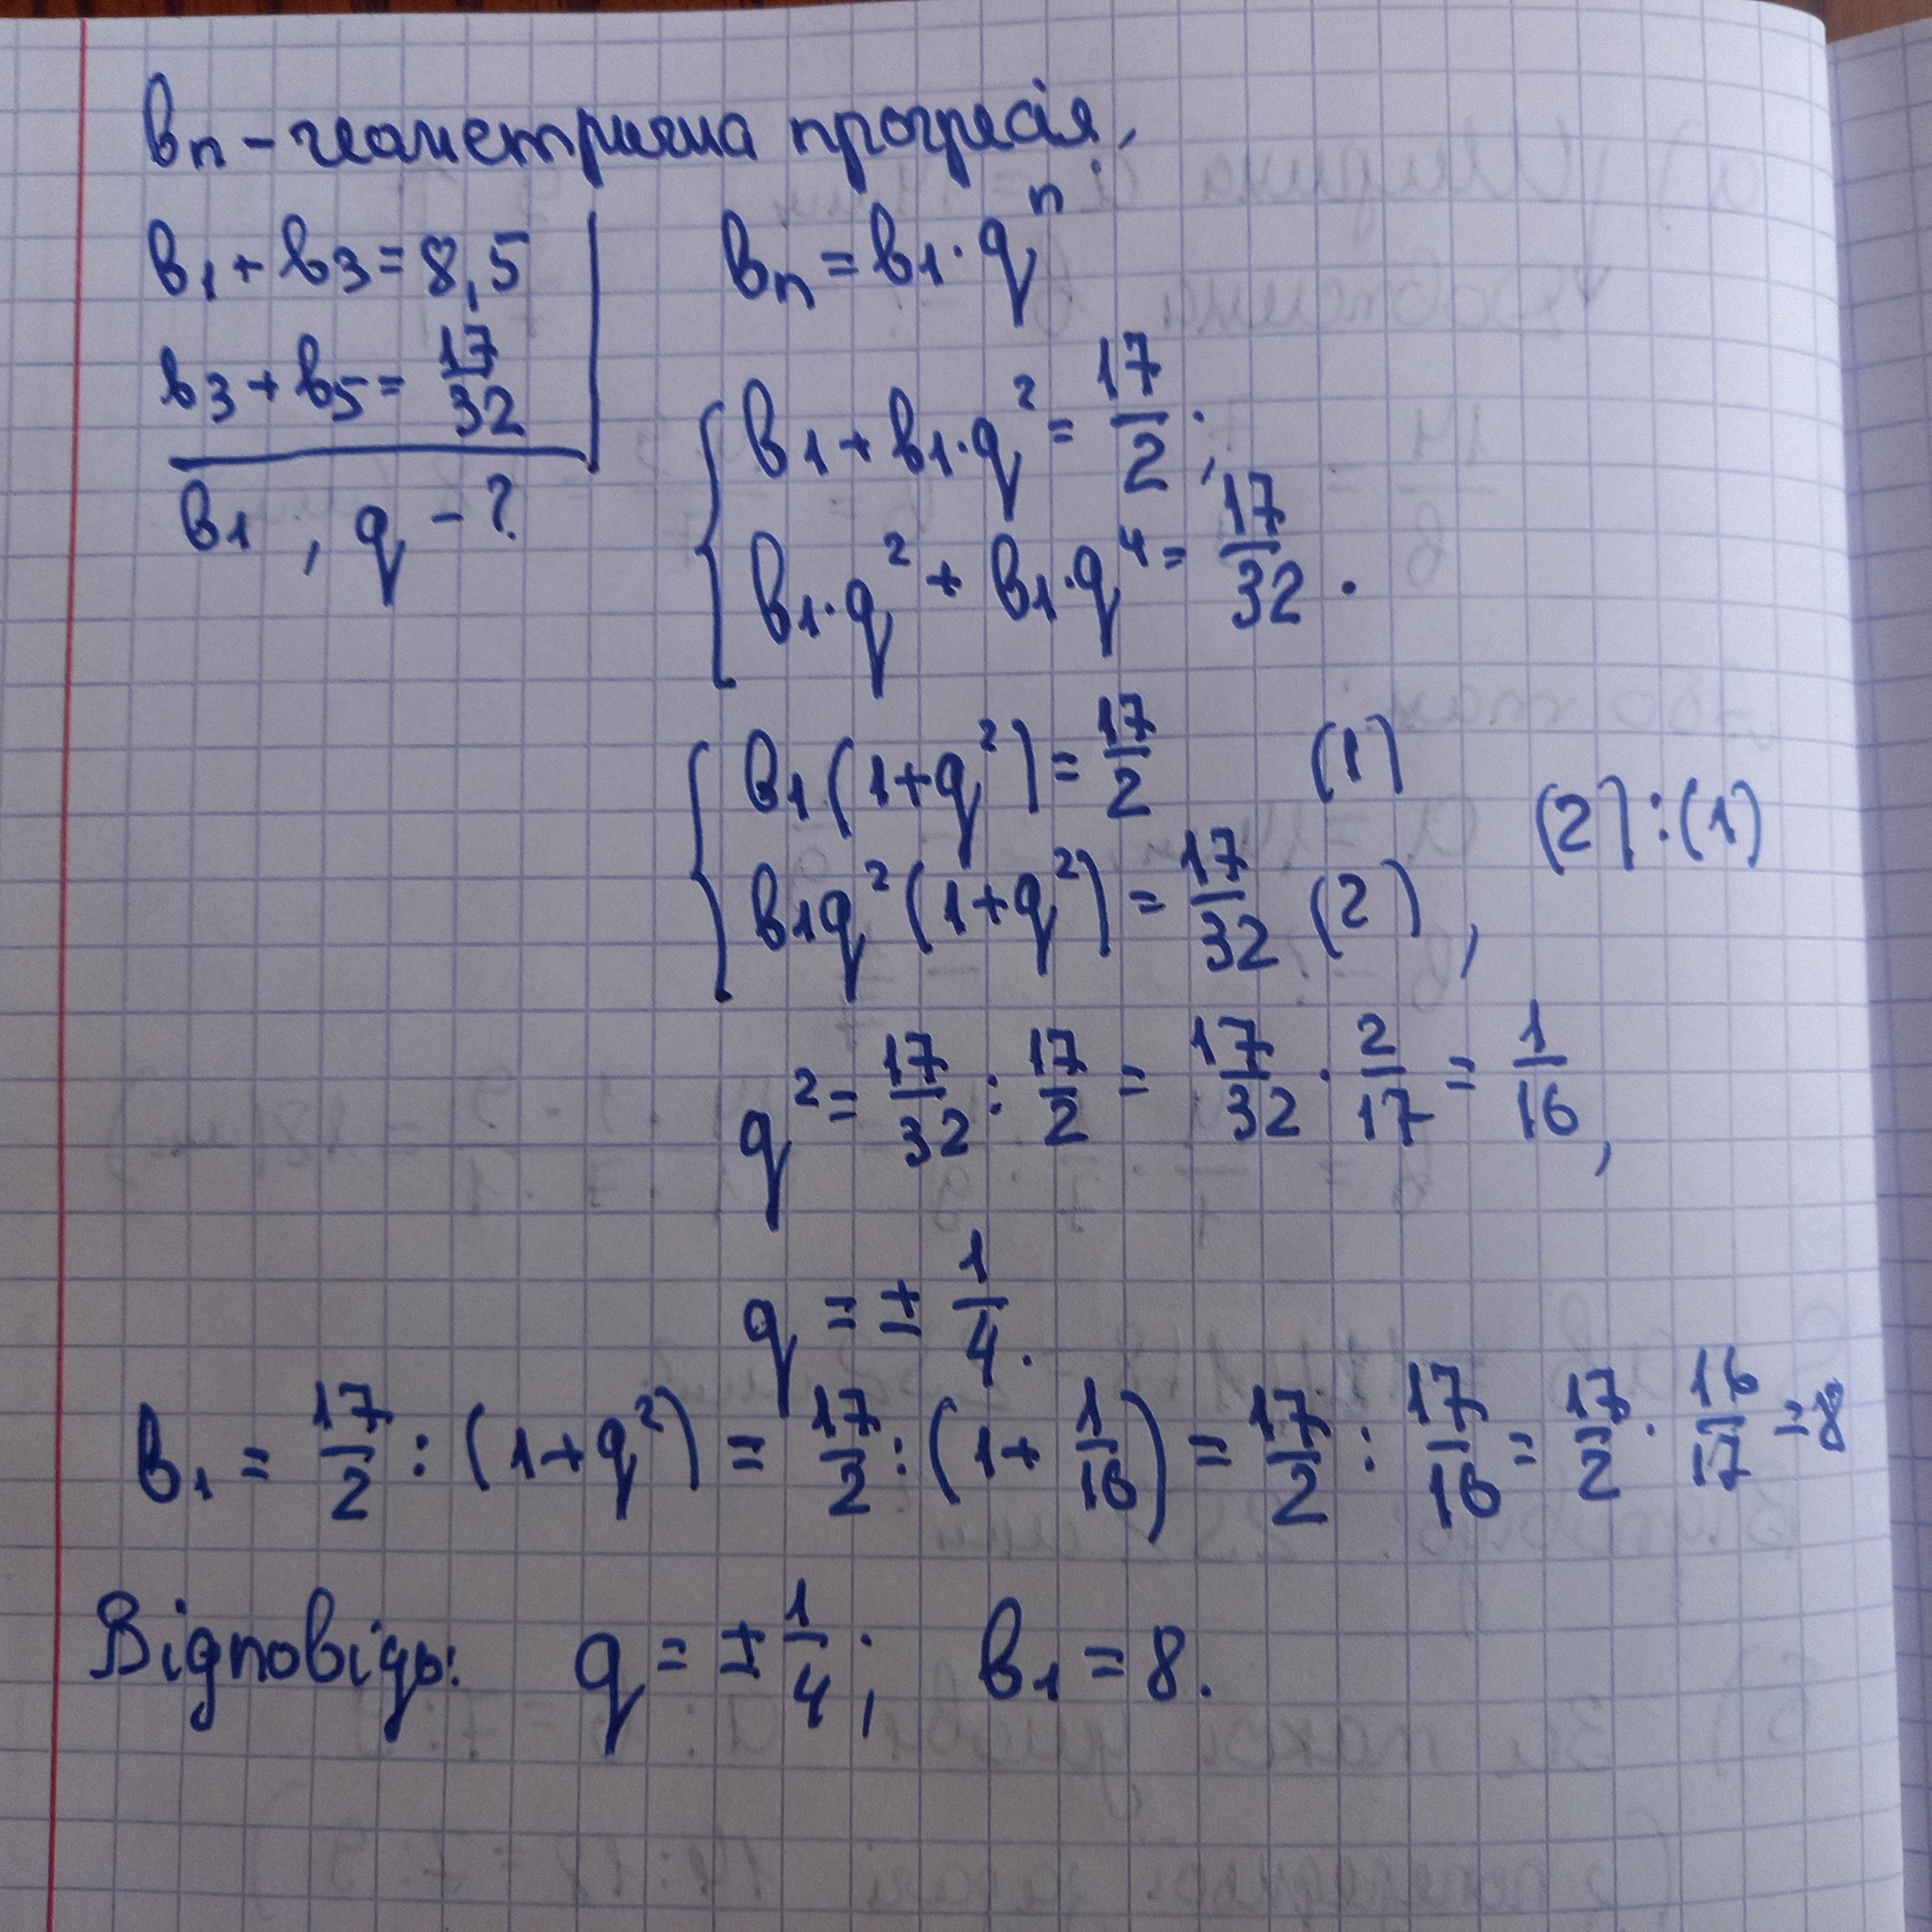 вn - геометрична прогресія.
в1 + в3 = 8,5
в3 + в5 = 17/32
в1, q - ?
вn = в1 · q^n
в1 + в1 · q^2 = 17/2;
в1 · q^2 + в1 · q^4 = 17/32.
в1 (1 + q^2) = 17/2 (1)
в1q^2 (1 + q^2) = 17/32 (2), (2) : (1)
q^2 = 17/32 : 17/2 = 17/32 · 2/17 = 1/16,
q = ± 1/4.
в1 = 17/2 : (1 + q^2) = 17/2 : (1 + 1/16) = 17/2 : 17/16 = 17/2 · 16/17 = 8
Відповідь: q = ± 1/4; в1 = 8.